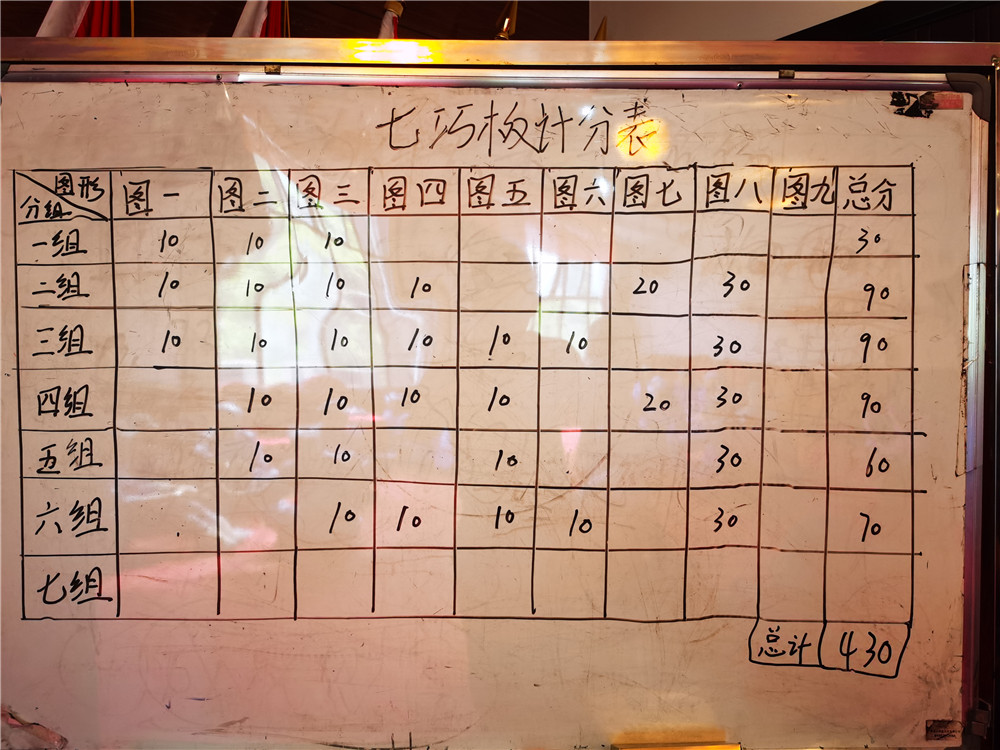 七巧板计分表
图形 分组 图一 图二 图三 图四 图五 图六 图七 图八 图九 总分
一组 10 10 10 30
二组 10 10 10 10 20 30 90
三组 10 10 10 10 10 10 30 90
四组 10 10 10 10 20 30 90
五组 10 10 10 30 60
六组 10 10 10 10 30 70
七组
总计 430